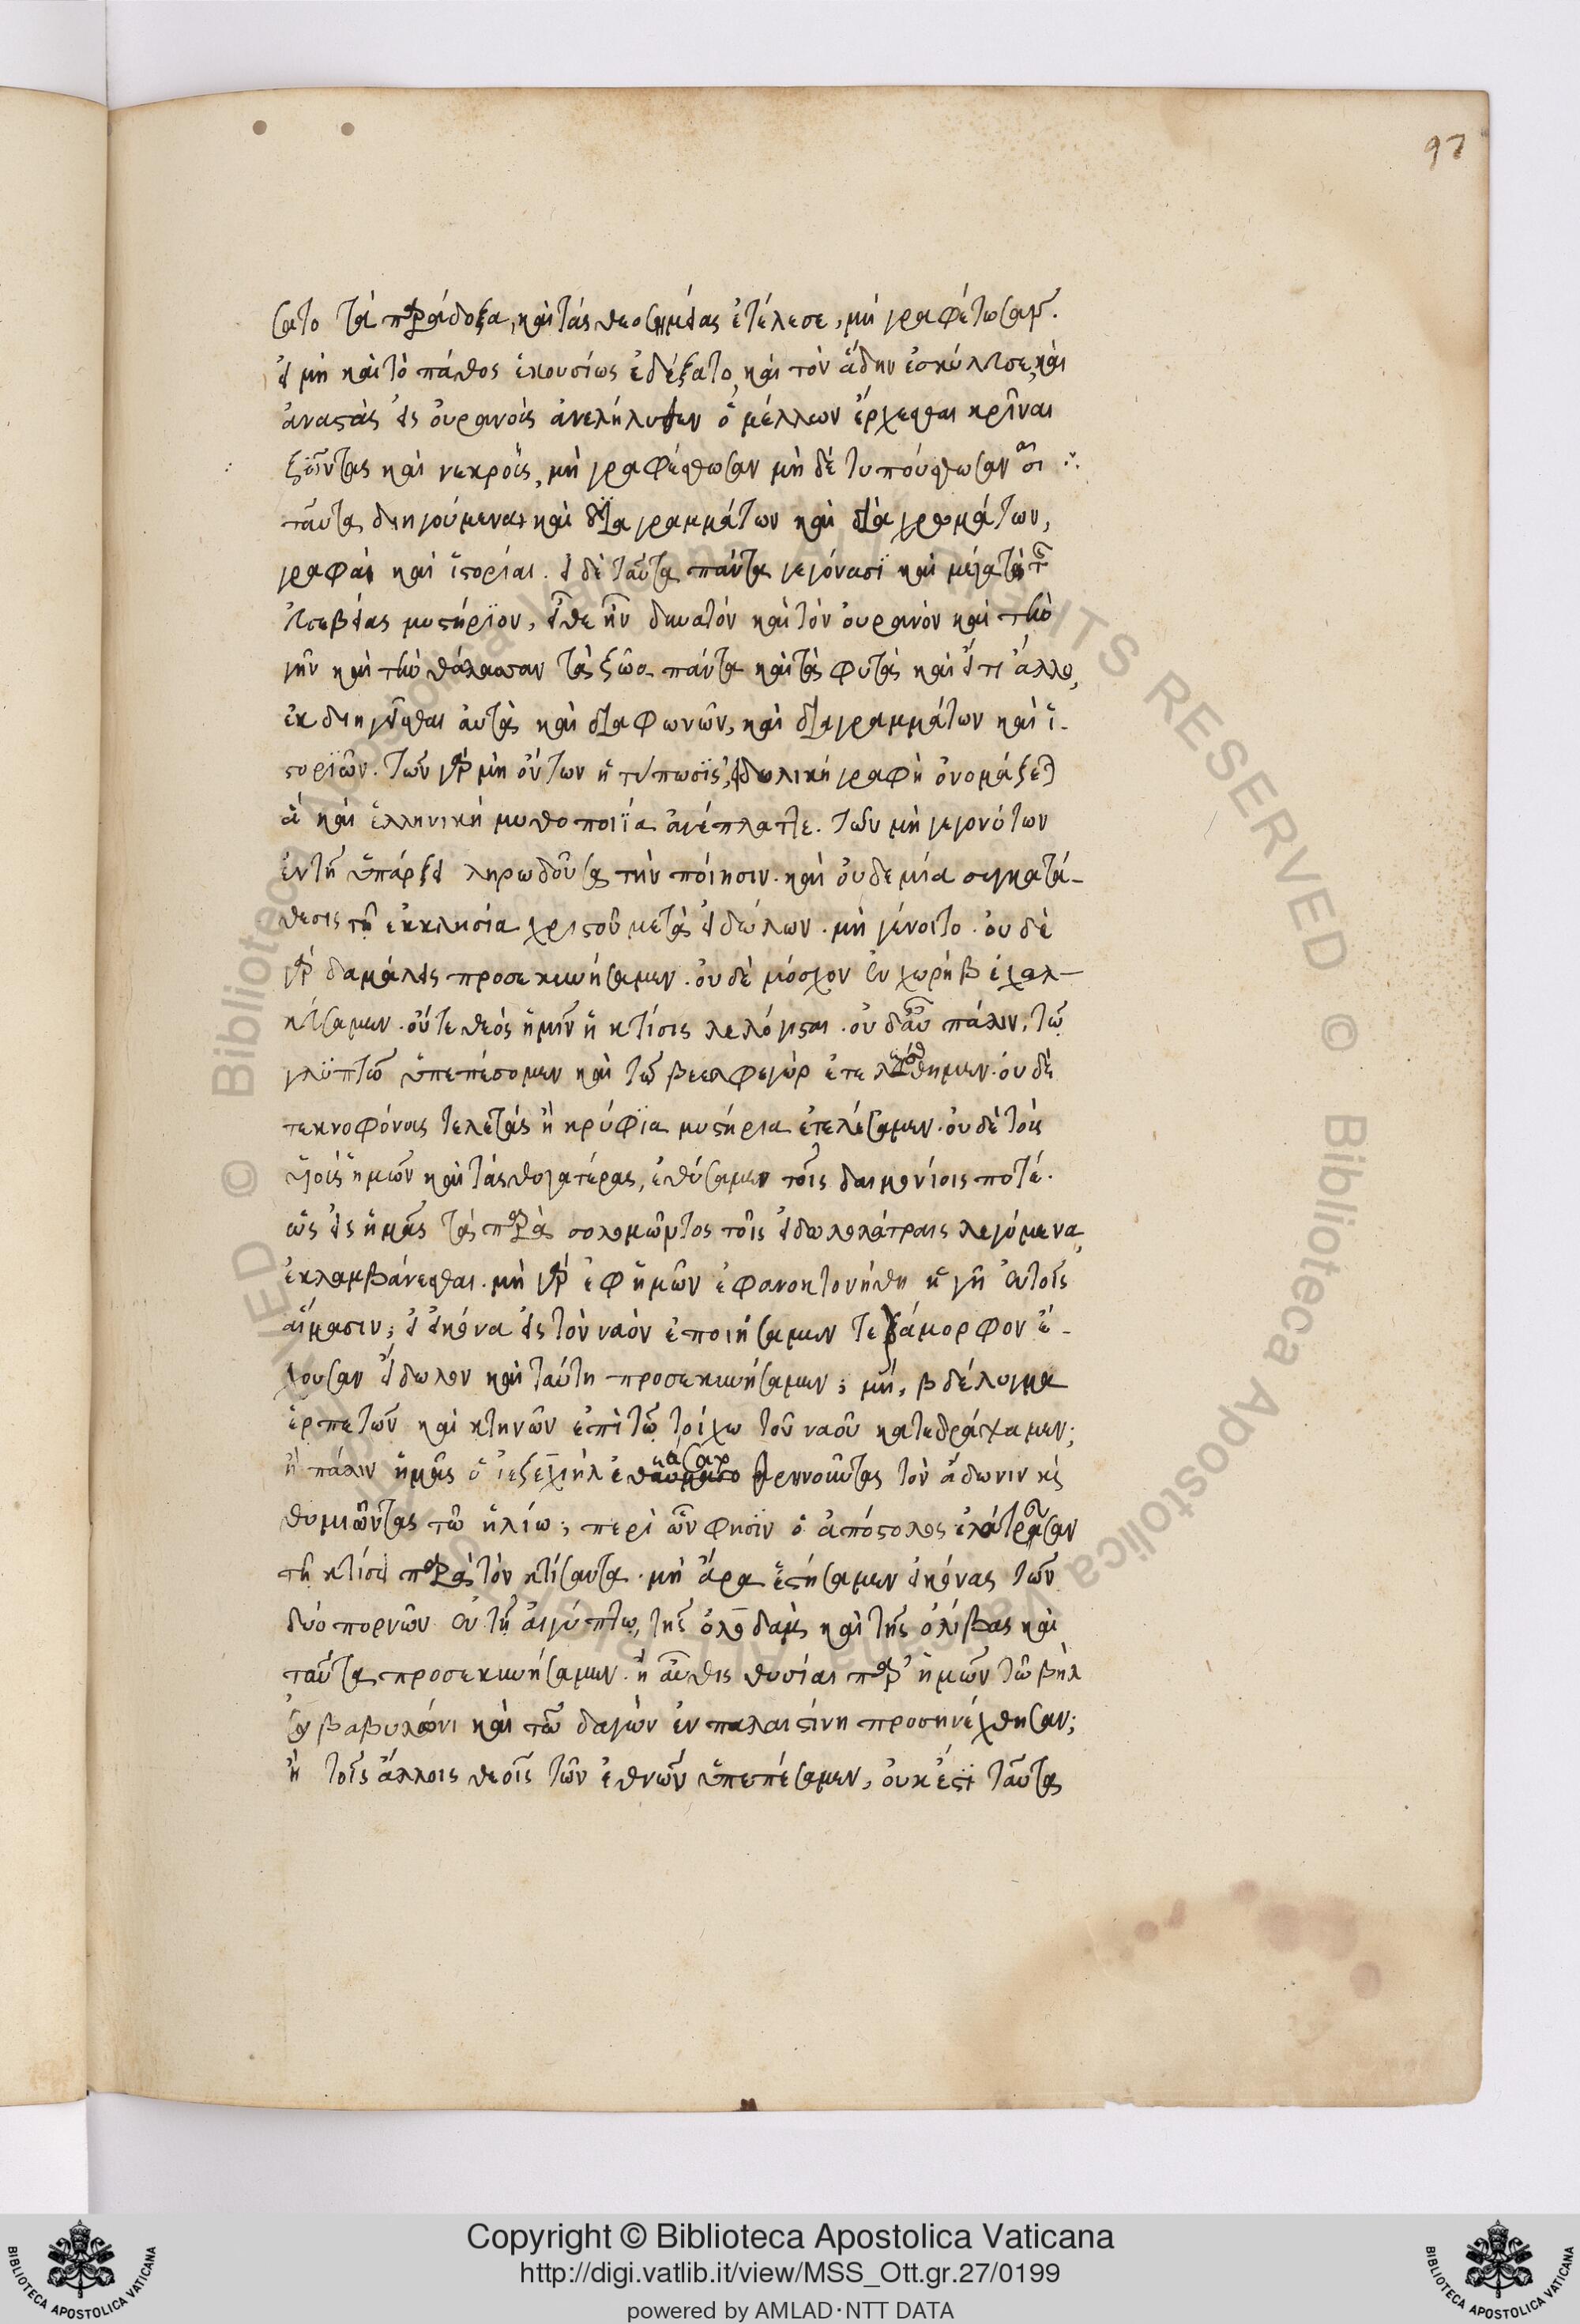 97
σατο τὰ παράδοξα, καὶ τὰς θεοσημείας ἐτέλεσε, μὴ γραφέτωσαν.
εἰ μὴ καὶ τὸ πάθος ἑκουσίως ἐδέξατο, καὶ τὸν ἅδην ἐσκύλευσε, καὶ
ἀναστὰς εἰς οὐρανοὺς ἀνελήλυθεν ὁ μέλλων ἔρχεσθαι κρῖναι
ζῶντας καὶ νεκροὺς, μὴ γραφέσθωσαν μὴ δὲ τυπούσθωσαν αἱ
ταῦτα διηγούμεναι καὶ διὰ γραμμάτων καὶ διὰ χρωμάτων,
γραφαὶ καὶ ἱστορίαι. εἰ δὲ ταῦτα πάντα γεγόνασι καὶ μέγα τὸ τῆς
εὐσεβείας μυστήριον, εἴθε ἦν δυνατὸν καὶ τὸν οὐρανὸν καὶ τὴν
γῆν καὶ τὴν θάλασσαν τὰ ζῶα πάντα καὶ τὰ φυτὰ καὶ εἴ τι ἄλλο,
ἐκδιηγεῖσθαι αὐτὰ καὶ διὰ φωνῶν, καὶ διὰ γραμμάτων καὶ ἱ-
στοριῶν. τῶν γὰρ μὴ ὄντων ἡ τύπωσις, εἰδωλικὴ γραφὴ ὀνομάζεται
ἃ καὶ ἑλληνικὴ μυθοποιία ἀνέπλαττε. τῶν μὴ γεγονότων
ἐν τῇ ὑπάρξει ληρωδοῦσα τὴν ποίησιν. καὶ οὐδεμία συγκατά-
θεσις τῇ ἐκκλησία χριστοῦ μετὰ εἰδώλων. μὴ γένοιτο. οὐδὲ
γὰρ δαμάλεις προσεκυνήσαμεν. οὐδὲ μόσχον ἐν χωρὴβ ἐχαλ-
κεύσαμεν. οὔτε θεὸς ἡμῖν ἡ κτίσις λελόγισται. οὐδ' αὖ πάλιν, τῶ
γλυπτῶ ὑπεπέσομεν καὶ τῶ βεελφεγὼρ ἐτελέσθημεν. οὐδὲ
τεκνοφόνους τελετὰς ἢ κρύφια μυστήρια ἐτελέσαμεν. οὐδὲ τοὺς
υἱοὺς ἡμῶν καὶ τὰς θυγατέρας, ἐθύσαμεν τοῖς δαιμονίοις ποτέ.
ὡς εἰς ἡμᾶς τὰ παρὰ σολομῶντος τοῖς εἰδωλολάτραις λεγόμενα,
ἐκλαμβάνεσθαι. μὴ γὰρ ἐφ ἡμῶν ἐφονοκτονήθη ἡ γῆ ἐν τοῖς
αἵμασιν; εἰ εἰκόνα εἰς τὸν ναὸν ἐποιήσαμεν τετράμορφον ἔ-
χουσαν εἴδωλον καὶ ταύτη προσεκυνήσαμεν; μὴ, βδέλυγμα
ἑρπετῶν καὶ κτηνῶν ἐπὶ τῶ τοίχω τοῦ ναοῦ κατεγράψαμεν;
ἢ πάλιν ἡμᾶς ὁ ἰεζεχιὴλ ἐθεάσατο θρηνοῦντας τὸν ἄδωνιν καὶ
θυμιῶντας τῶ ἡλίω; περὶ ὧν φησὶν ὁ ἀπόστολος ἐλάτρευσαν
τῇ κτίσει παρὰ τὸν κτίσαντα. μὴ ἄρα ἐστήσαμεν εἰκόνας τῶν
δύο πορνῶν ἐν τῇ αἰγύπτω, τῆς ὀλοδαμ καὶ τῆς ὀλίβας καὶ
ταῦτα προσεκυνήσαμεν. ἢ αὖθις θυσίαι παρ' ἡμῶν τῶ βὴλ
ἐν βαβυλῶνι καὶ τῶ δαγὼν ἐν παλαιστίνη προσηνέχθησαν;
ἢ τοῖς ἄλλοις θεοῖς τῶν ἐθνῶν ὑπεπέσαμεν, οὐκ ἔστι ταῦτα
Copyright © Biblioteca Apostolica Vaticana
http://digi.vatlib.it/view/MSS_Ott.gr.27/0199
powered by AMLAD·NTT DATA